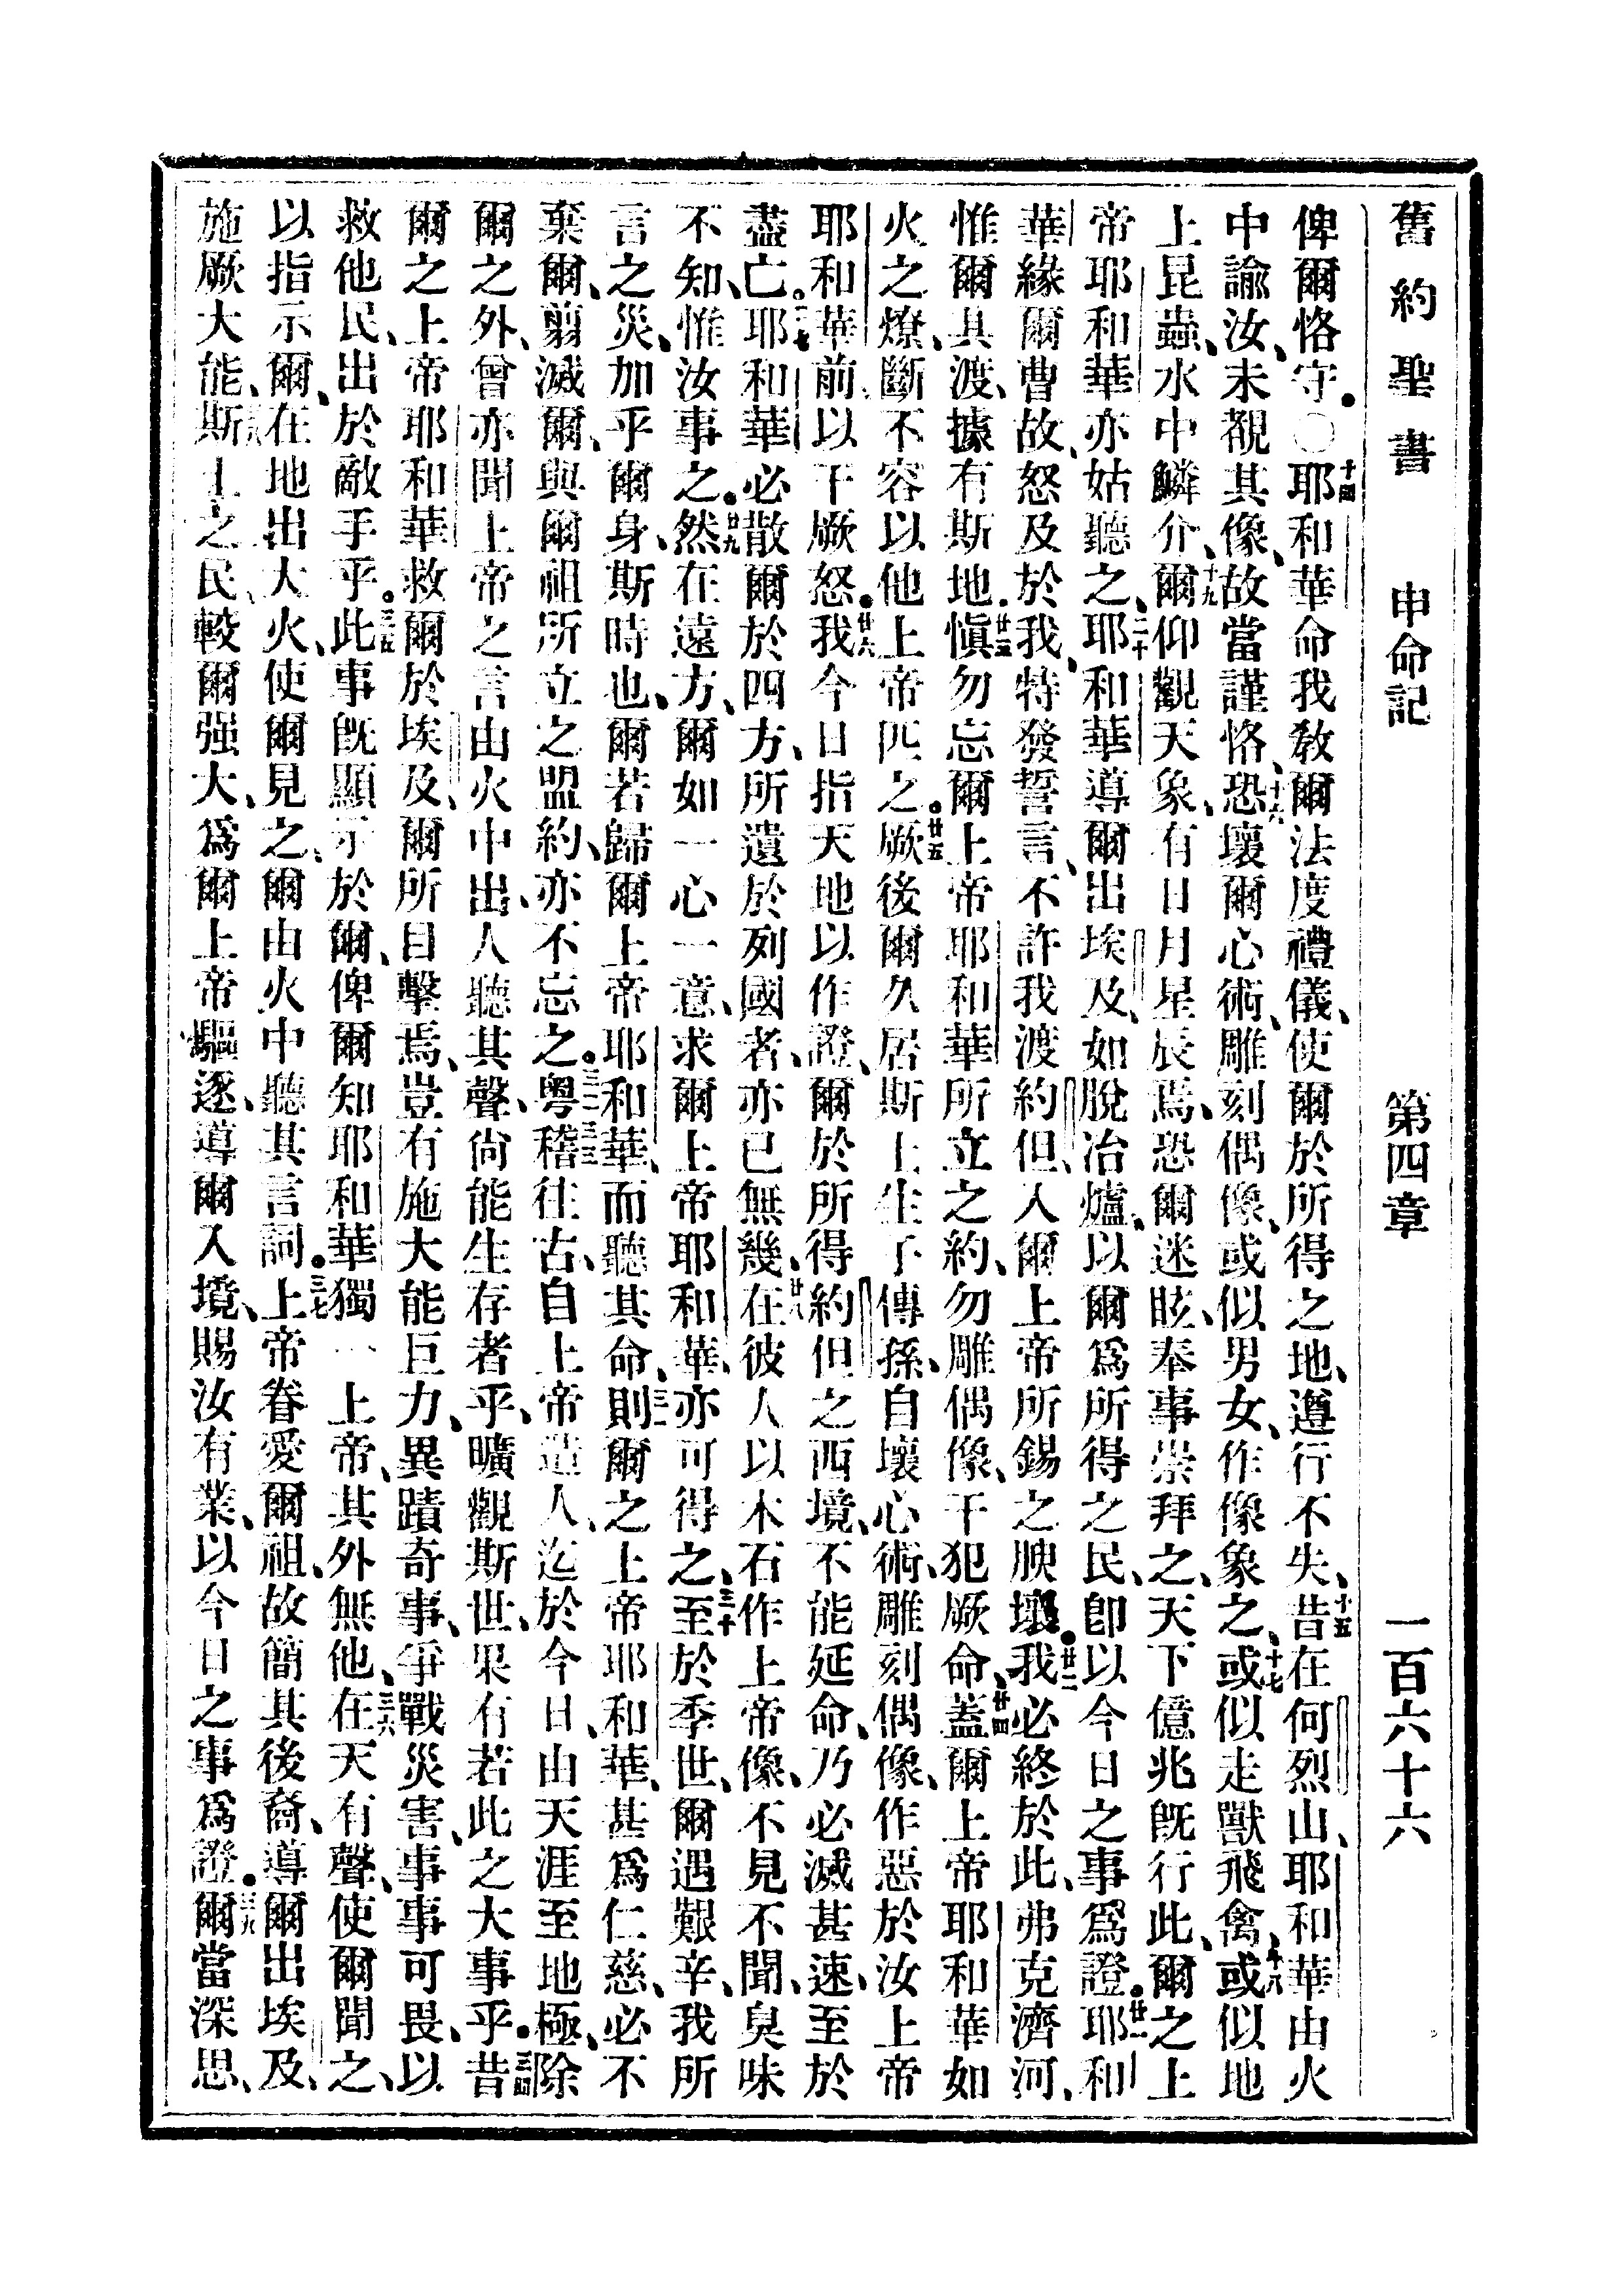 舊約聖書 申命記 第四章 一百六十六
俾爾恪守。○十四耶和華命我教爾法度禮儀、使爾於所得之地、遵行不失、十五昔在何烈山、耶和華由火
中諭汝、未覩其像、故當謹恪、十六恐壞爾心術、雕刻偶像、或似男女、作像象之、十七或似走獸飛禽、十八或似地
上昆蟲、水中鱗介、十九爾仰觀天象、有日月星辰焉、恐爾迷眩、奉事崇拜之、天下億兆旣行此、爾之上
帝耶和華亦姑聽之、二十耶和華導爾出埃及、如脫冶爐、以爾爲所得之民、卽以今日之事爲證。廿一耶和
華緣爾曹故、怒及於我、特發誓言、不許我渡約但、入爾上帝所錫之腴壤。廿二我必終於此、弗克濟河、
惟爾其渡、據有斯地。廿三愼勿忘爾上帝耶和華所立之約、勿雕偶像、干犯厥命、廿四蓋爾上帝耶和華如
火之燎、斷不容以他上帝匹之。廿五厥後爾久居斯土、生子傳孫、自壞心術、雕刻偶像、作惡於汝上帝
耶和華前、以干厥怒。廿六我今日指天地以作證、爾於所得約但之西境、不能延命、乃必滅甚速、至於
盡亡。廿七耶和華必散爾於四方、所遺於列國者、亦已無幾、廿八在彼人以木石作上帝像、不見不聞、臭味
不知、惟汝事之。廿九然在遠方、爾如一心一意、求爾上帝耶和華、亦可得之、三十至於季世、爾遇艱辛、我所
言之災、加乎爾身、斯時也、爾若歸爾上帝耶和華、而聽其命、三一則爾之上帝耶和華、甚爲仁慈、必不
棄爾、翦滅爾、與爾祖所立之盟約、亦不忘之。三二粤稽往古、自上帝造人、迄於今日、由天涯至地極、除
爾之外、曾亦聞上帝之言由火中出、人聽其聲、尙能生存者乎、曠觀斯世、果有若此之大事乎。三四昔
爾之上帝耶和華救爾於埃及、爾所目擊焉、豈有施大能巨力、異蹟奇事、爭戰災害、事事可畏、以
救他民、出於敵手乎。三五此事旣顯示於爾、俾爾知耶和華獨一上帝、其外無他、三六在天有聲、使爾聞之、
以指示爾、在地出大火、使爾見之、爾由火中聽其言詞。三七上帝眷愛爾祖、故簡其後裔、導爾出埃及、
施厥大能、三八斯土之民、較爾强大、爲爾上帝驅逐、導爾入境、賜汝有業、以今日之事爲證。三九爾當深思、